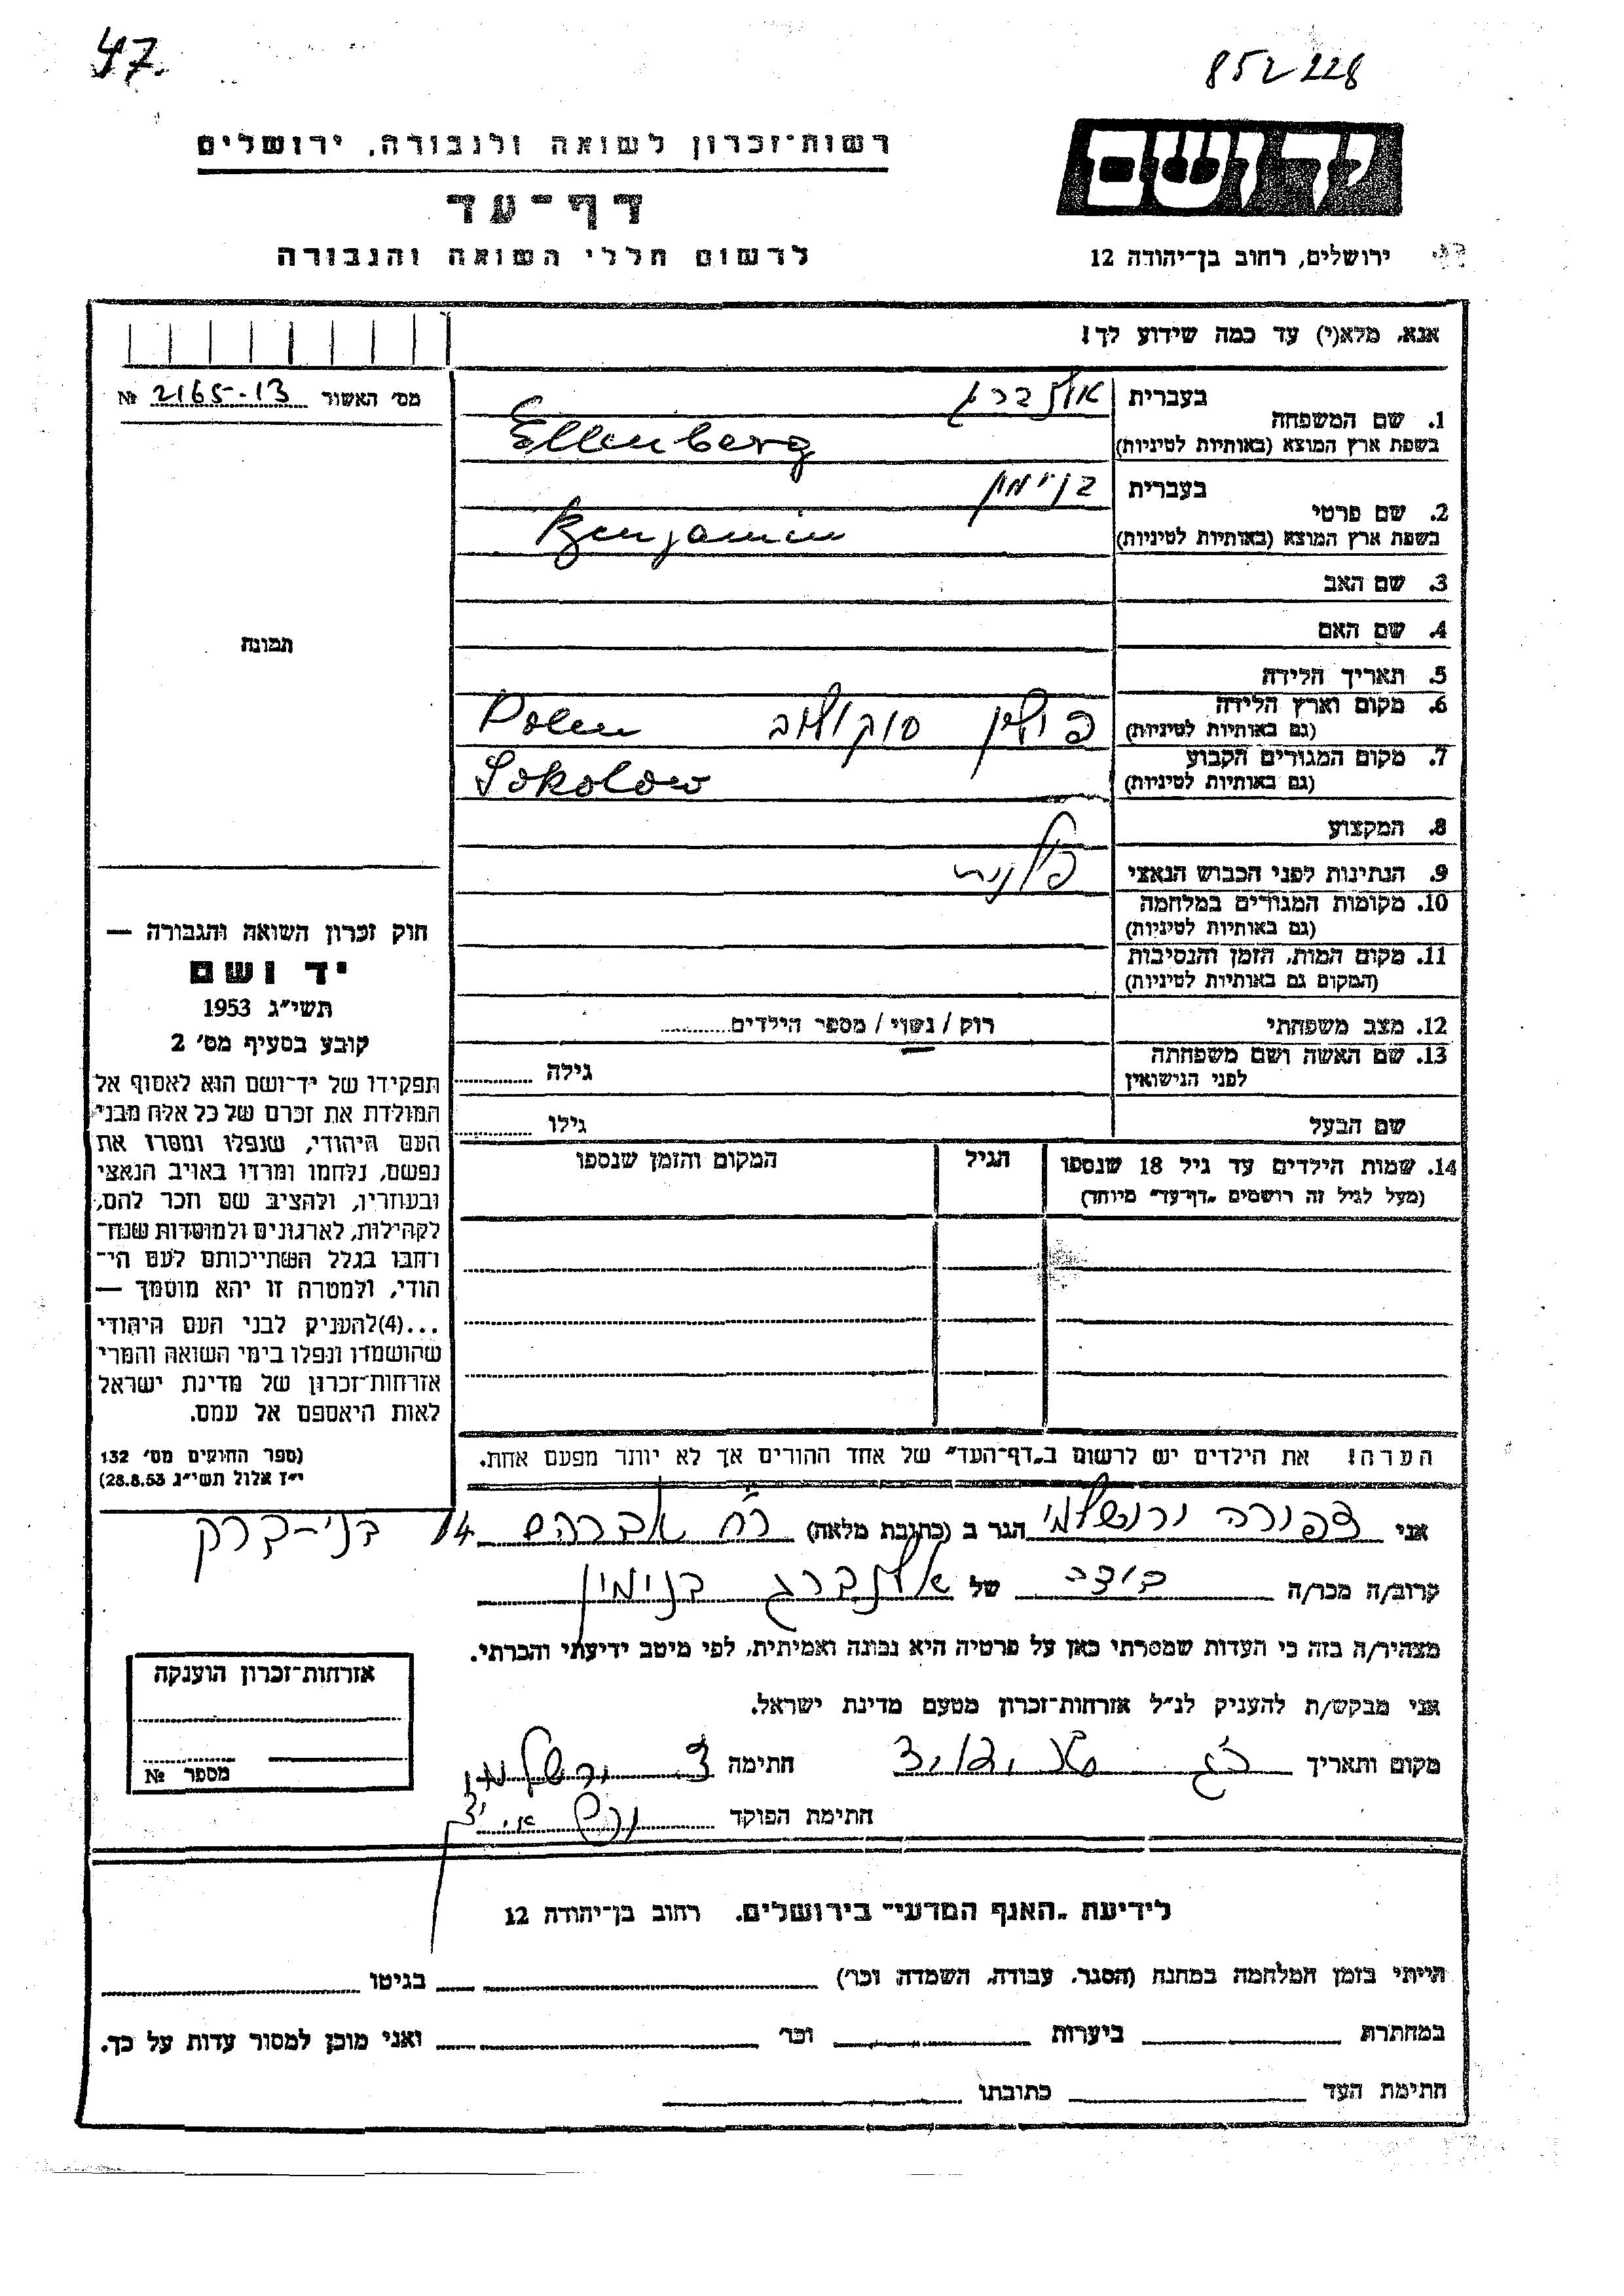 47.
852228
רשות-זכרון לשואה ולגבורה, ירושלים
דף-עד
לרשום חללי השואה והגבורה
יד ושם
ירושלים, רחוב בן-יהודה 12
אנא, מלא(י) עד כמה שידוע לך!
מס' האשור 2165-13 №
תמונה
חוק זכרון השואה והגבורה —
יד ושם
תשי"ג 1953
קובע בסעיף מס' 2
תפקידו של יד-ושם הוא לאסוף אל
המולדת את זכרם של כל אלה מבני
העם היהודי, שנפלו ומסרו את
נפשם, נלחמו ומרדו באויב הנאצי
ובעוזריו, ולהציב שם וזכר להם,
לקהילות, לארגונים ולמוסדות שנח-
רחבו בגלל השתייכותם לעם הי-
הודי, ולמטרה זו יהא מוסמך —
...(4)להעניק לבני העם היהודי
שהושמדו ונפלו בימי השואה והמרי
אזרחות-זכרון של מדינת ישראל
לאות היאספם אל עמם.
(ספר החוקים מס' 132
י"ז אלול תשי"ג 28.8.53)
1. שם המשפחה
בעברית אלנברג
בשפת ארץ המוצא (באותיות לטיניות) Ellenberg
2. שם פרטי
בעברית בנימין
בשפת ארץ המוצא (באותיות לטיניות) Benjamin
3. שם האב
4. שם האם
5. תאריך הלידה
6. מקום וארץ הלידה
(גם באותיות לטיניות) פולין סוקולוב Polen
7. מקום המגורים הקבוע
(גם באותיות לטיניות) Sokolow
8. המקצוע
9. הנתינות לפני הכבוש הנאצי פולנית
10. מקומות המגורים במלחמה
(גם באותיות לטיניות)
11. מקום המות, הזמן והנסיבות
(המקום גם באותיות לטיניות)
12. מצב משפחתי רוק / נשוי / מספר הילדים
13. שם האשה ושם משפחתה
לפני הנישואין גילה
שם הבעל גילו
14. שמות הילדים עד גיל 18 שנספו הגיל המקום והזמן שנספו
(מעל לגיל זה רושמים "דף-עד" מיוחד)
הערה! את הילדים יש לרשום ב"דף-העד" של אחד ההורים אך לא יותר מפעם אחת.
אני צפורה ירושלמי הגר ב (כתובת מלאה) רח' אברהם 14 בני-ברק
קרוב/ה מכר/ה של אלנברג בנימין
מצהיר/ה בזה כי העדות שמסרתי כאן על פרטיה היא נכונה ואמיתית, לפי מיטב ידיעתי והכרתי.
אני מבקש/ת להעניק לנ"ל אזרחות-זכרון מטעם מדינת ישראל.
מקום ותאריך חתימה צ. ירושלמי
חתימת הפוקד
אזרחות-זכרון הוענקה
מספר №
לידיעת "האגף המדעי" בירושלים. רחוב בן-יהודה 12
הייתי בזמן המלחמה במחנה (הסגר, עבודה, השמדה וכו') בגיטו
במחתרת ביערות וכו' ואני מוכן למסור עדות על כך.
חתימת העד כתובתו